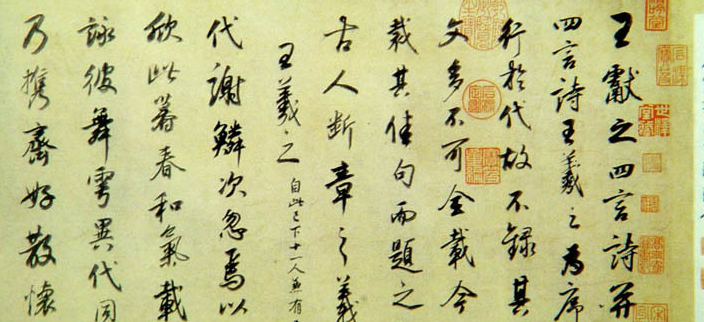 王獻之四言詩并
四言詩王羲之為序
行於代故不錄其
文多不可全載今
裁其佳句而題之
古人斷章之義
王羲之 自此已下十一人並有
代謝鱗次忽焉以
欣此暮春和氣載
詠彼舞雩異代同
乃攜齊好散懷